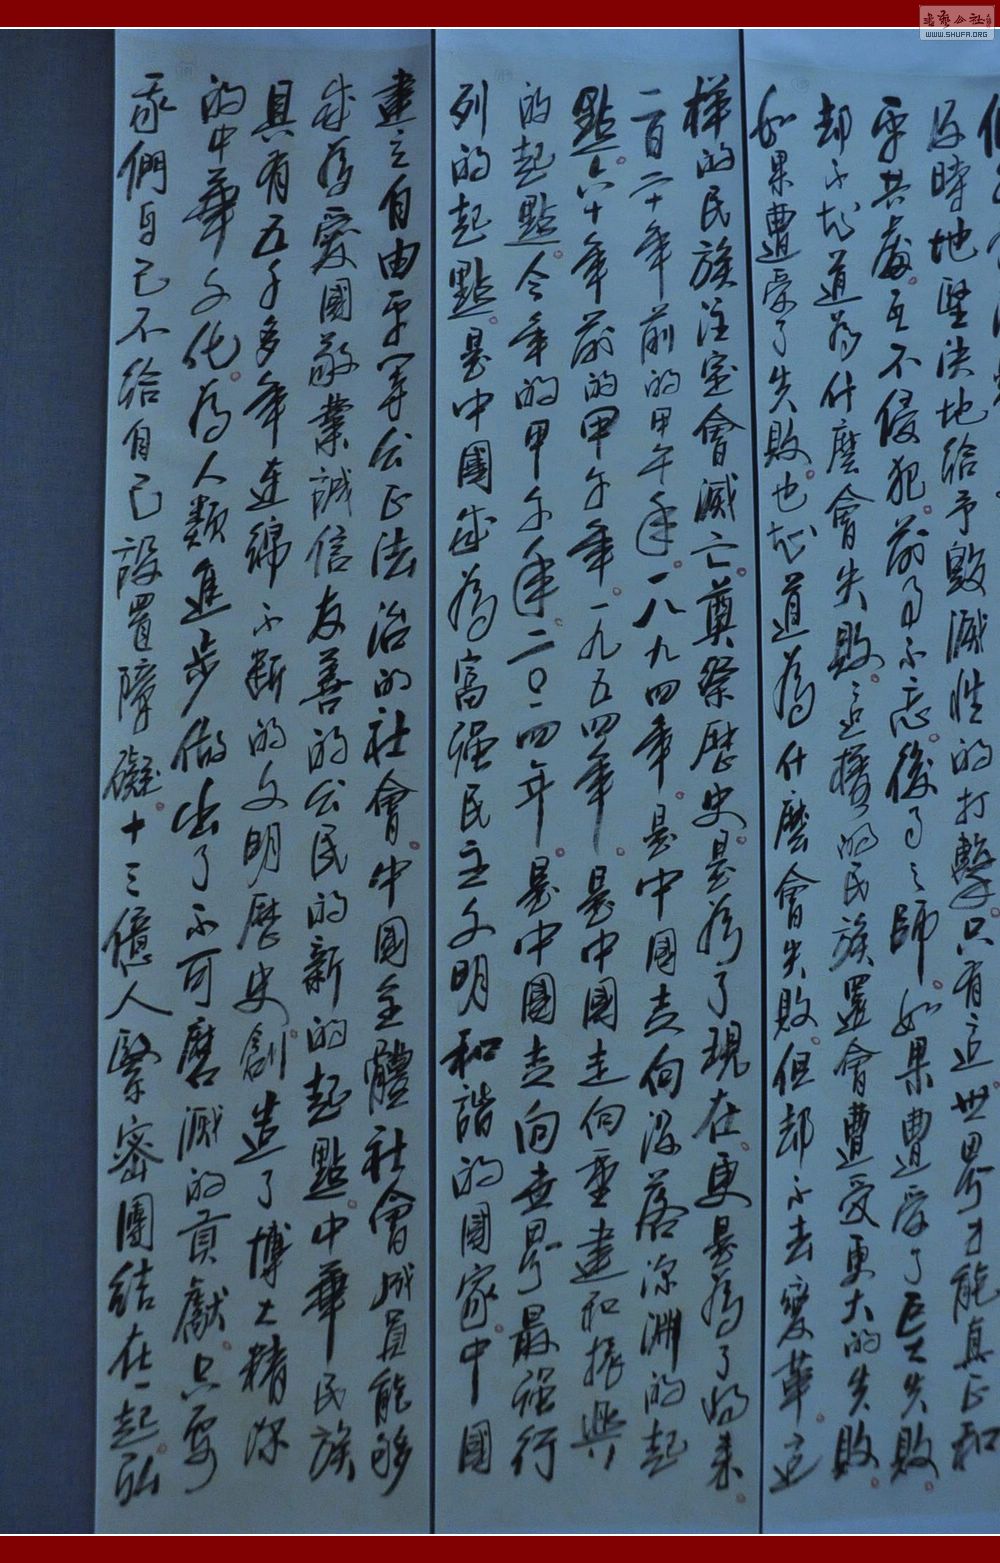 及時地堅決地給予毀滅性的打擊只有這世界才能真正和
平共處互不侵犯前事不忘後事之師如果遭受了巨大失敗
却不知道為什麼會失敗這樣的民族還會遭受更大的失敗
如果遭受了失敗也知道為什麼會失敗但却不去變革這
樣的民族注定會滅亡奠祭歷史是為了現在更是為了將來
二百二十年前的甲午年一八九四年是中國走向沒落深淵的起
點六十年前的甲午年一九五四年是中國走向重建和振興
的起點今年的甲午年二〇一四年是中國走向世界最強行
列的起點是中國成為富強民主文明和諧的國家中國
建立自由平等公正法治的社會中國全體社會成員能够
成為愛國敬業誠信友善的公民的新的起點中華民族
具有五千多年連綿不斷的文明歷史創造了博大精深
的中華文化為人類進步做出了不可磨滅的貢獻只要
我們自己不給自己設置障礙十三億人緊密團結在一起弘
書藝公社
WWW.SHUFA.ORG